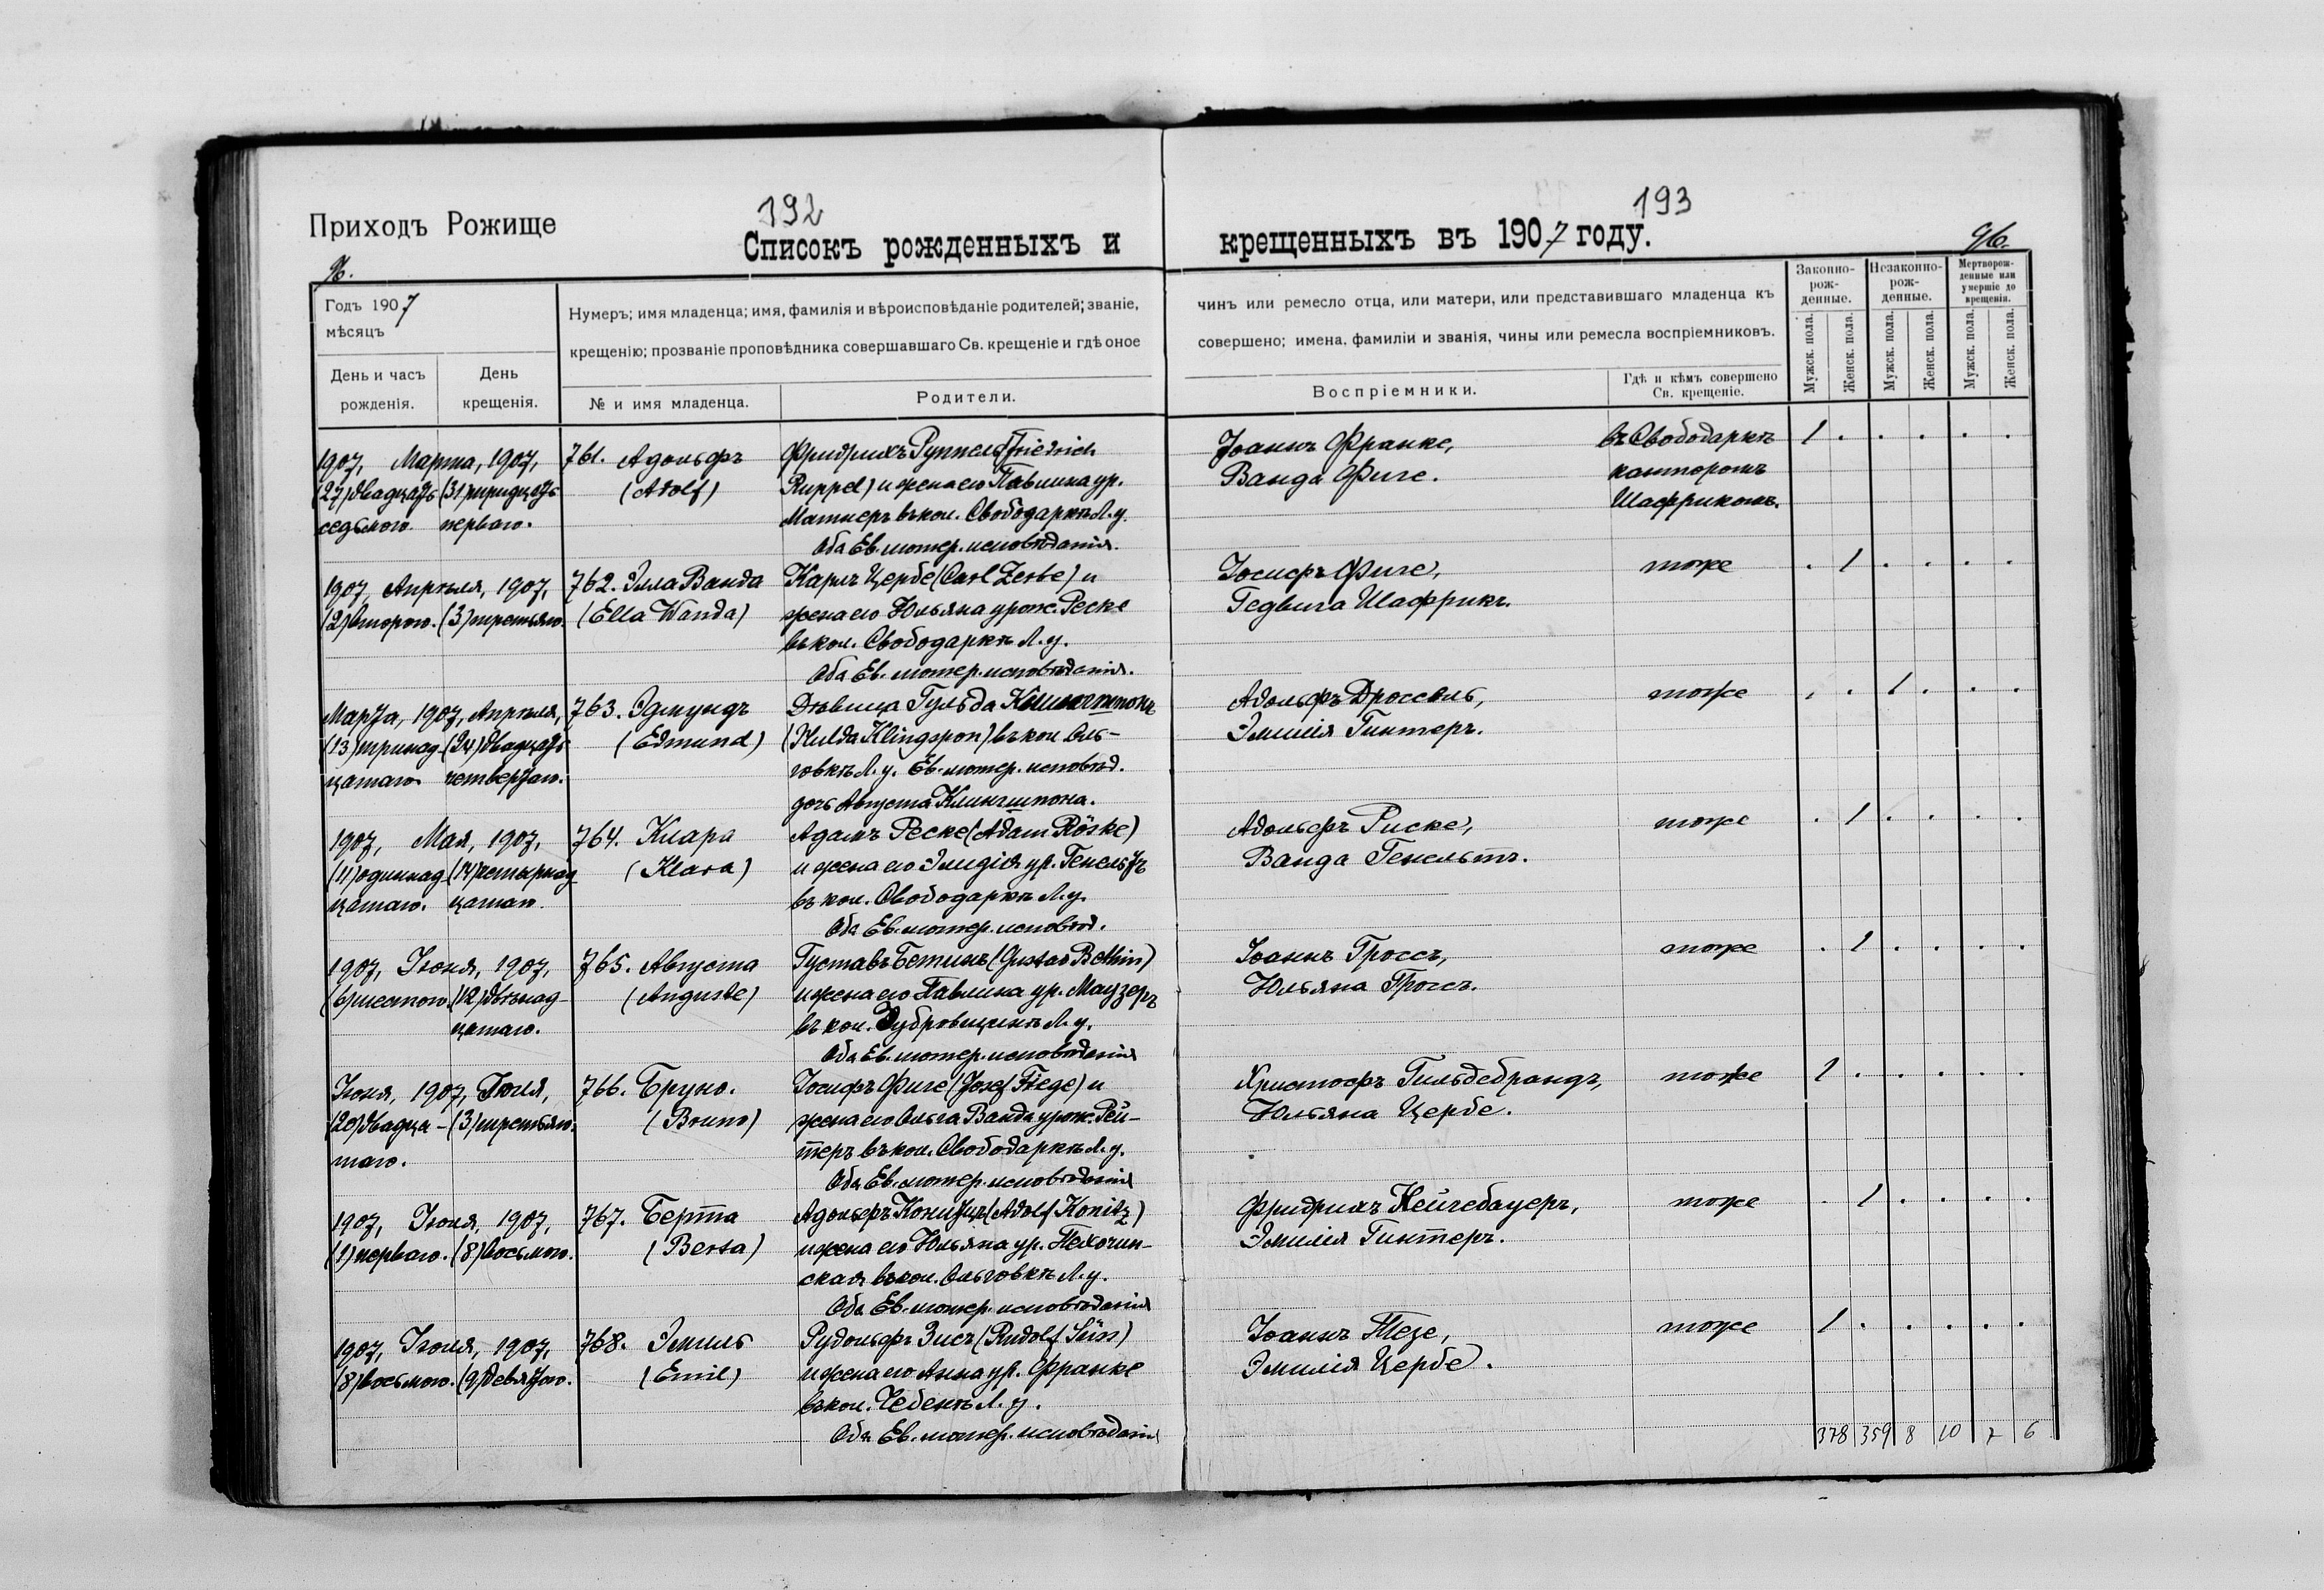 192
193
Приходъ Рожище
Списокъ рожденныхъ и
крещенныхъ въ 1907 году.
96.
96.
Годъ 1907
мѣсяцъ
День и часъ
рожденія.
День
крещенія.
Нумеръ; имя младенца; имя, фамилія и вѣроисповѣданіе родителей; званіе,
крещенію; прозваніе проповѣдника совершавшаго Св. крещеніе и гдѣ оное
№ и имя младенца.
Родители.
чинъ или ремесло отца, или матери, или представившаго младенца къ
совершено; имена, фамиліи и званія, чины или ремесла воспріемниковъ.
Воспріемники.
Гдѣ и кѣмъ совершено
Св. крещеніе.
Законно-
рож-
денные.
Незаконно-
рож-
денные.
Мертворож-
денные или
умершіе до
крещенія.
Мужск. пола.
Женск. пола.
Мужск. пола.
Женск. пола.
Мужск. пола.
Женск. пола.
1907, Марта, 1907,
(27) двадцать (31) тридцать
седьмого. перваго.
761. Адольфъ
(Adolf)
Фридрихъ Руппель (Friedrich
Ruppel) и жена его Павлина ур.
Матнеръ въ кол. Свободаркѣ Л. у.
Оба Ев. лютер. исповѣданія.
Іоаннъ Франке,
Ванда Фиге.
въ Свободаркѣ
канторомъ
Шаффрикомъ.
1 . . . . .
1907, Апрѣля, 1907,
(2) второго. (3) третьяго.
762. Элла Ванда
(Ella Wanda)
Карлъ Цербе (Carl Zerbe) и
жена его Юльяна урож. Реске
въ кол. Свободаркѣ Л. у.
Оба Ев. лютер. исповѣданія.
Іосифъ Фиге,
Гедвига Шаффрикъ.
тоже
. 1 . . . .
Марта, 1907, Апрѣля,
(13) тринад- (24) двадцать
цатаго четвертаго.
763. Эдмундъ
(Edmund)
Дѣвица Гульда Клингшпонъ
(Hulda Klingspon) въ кол Оль-
говкѣ Л. у. Ев. лютер. исповѣд.
дочь Августа Клингшпона.
Адольфъ Дроссель,
Эмилія Гинтеръ.
тоже
. . 1 . . .
1907, Мая, 1907,
(11) одиннад- (14) четырнад-
цатаго. цатаго.
764. Клара
(Klara)
Адамъ Реске (Adam Röske)
и жена его Эмидія ур. Генсельтъ
въ кол. Свободаркѣ Л. у.
Оба Ев. лютер. исповѣд.
Адольфъ Риске,
Ванда Генсельтъ.
тоже
. 1 . . . .
1907, Іюня, 1907,
(6) шестого. (12) двѣнад-
цатаго.
765. Августа
(Auguste)
Густавъ Бетинъ (Gustav Bethin)
и жена его Павлина ур. Маузеръ
въ кол. Дубровщинѣ Л. у.
Оба Ев. лютер. исповѣданія
Іоаннъ Гроссъ,
Юльяна Гроссъ.
тоже
. 1 . . . .
Іюня, 1907, Іюля,
(20) двадца- (3) третьяго.
таго.
766. Бруно.
(Bruno)
Іосифъ Фиге (Josef Fiege) и
жена его Ольга Ванда урож. Рей-
теръ въ кол. Свободаркѣ Л. у.
Оба Ев. лютер. исповѣданія
Христофъ Гильдебрандъ,
Юльяна Цербе.
тоже
1 . . . . .
1907, Іюля, 1907,
(1) перваго. (8) восьмого.
767. Берта
(Berta)
Адольфъ Коницъ (Adolf Konitz)
и жена его Юльяна ур. Техочин-
ская въ кол. Ольговкѣ Л. у.
Оба Ев. лютер. исповѣданія
Фридрихъ Нейгебауеръ,
Эмилія Гинтеръ.
тоже
. 1 . . . .
1907, Іюля, 1907,
(8) восьмого. (9) девятаго.
768. Эмиль
(Emil)
Рудольфъ Зисъ (Rudolf Süss)
и жена его Анна ур. Франке
въ кол. Чебенѣ Л. у.
Оба Ев. лютер. исповѣданія
Іоаннъ Тезе,
Эмилія Цербе.
тоже
1 . . . . .
378 359 8 10 7 6